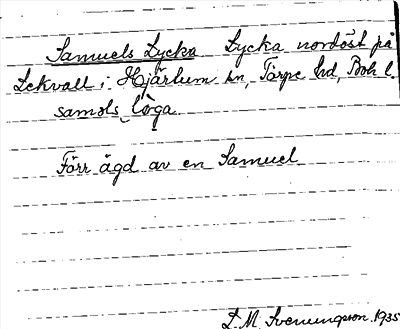 Samuels Lycka Lycka nordöst på
Lekvall i Hjärtum sn, Torpe hd, Boh l.
samǝls lỳga
Förr ägd av en Samuel
L. M. Svenungsson. 1935